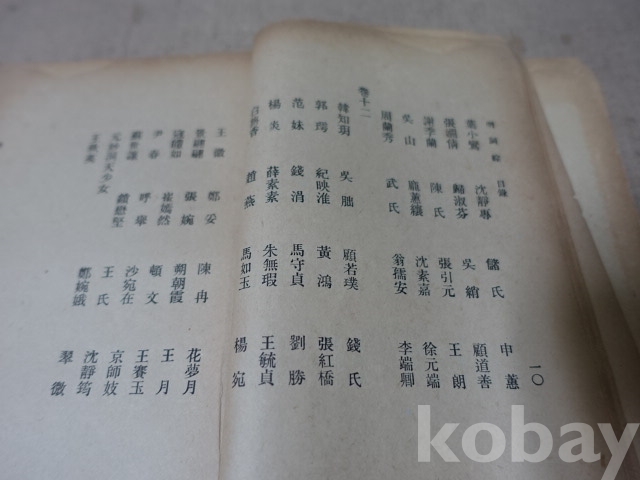 明詞綜 目錄 一〇
葉小鸞 沈靜專 儲氏 申蕙
張鴻 歸淑芬 吳綃 顧道善
謝季蘭 陳氏 張引元 王朗
吳山 龐蕙纕 沈素嘉 徐元端
周蘭秀 武氏 翁孺安 李端卿
卷十二
韓知玥 吳朏 顧若璞 錢氏
郭琇 紀映淮 黃鴻 張紅橋
范姝 錢涓 馬守貞 劉勝
楊炎 薛素素 朱無瑕 王毓貞
香 趙燕 馬如玉 楊宛
王微 鄭妥 陳冉 花夢月
景翩翩 張婉 朔朝霞 王月
寇 如 崔嫣然 頓文 王賽玉
尹春 呼舉 沙宛在 京師妓
趙戀堅 王氏 沈靜筠
元妙洞天少女 鄭婉娥 翠微
王 英